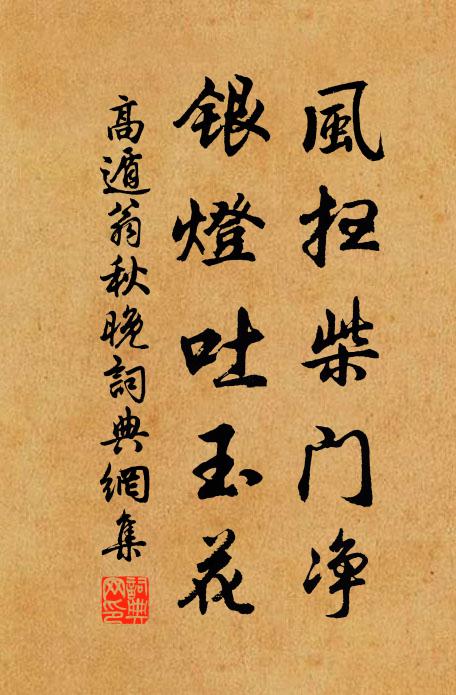 風扫柴门净
銀燈吐玉花
高遁翁秋晚詞典網集
詞典网印